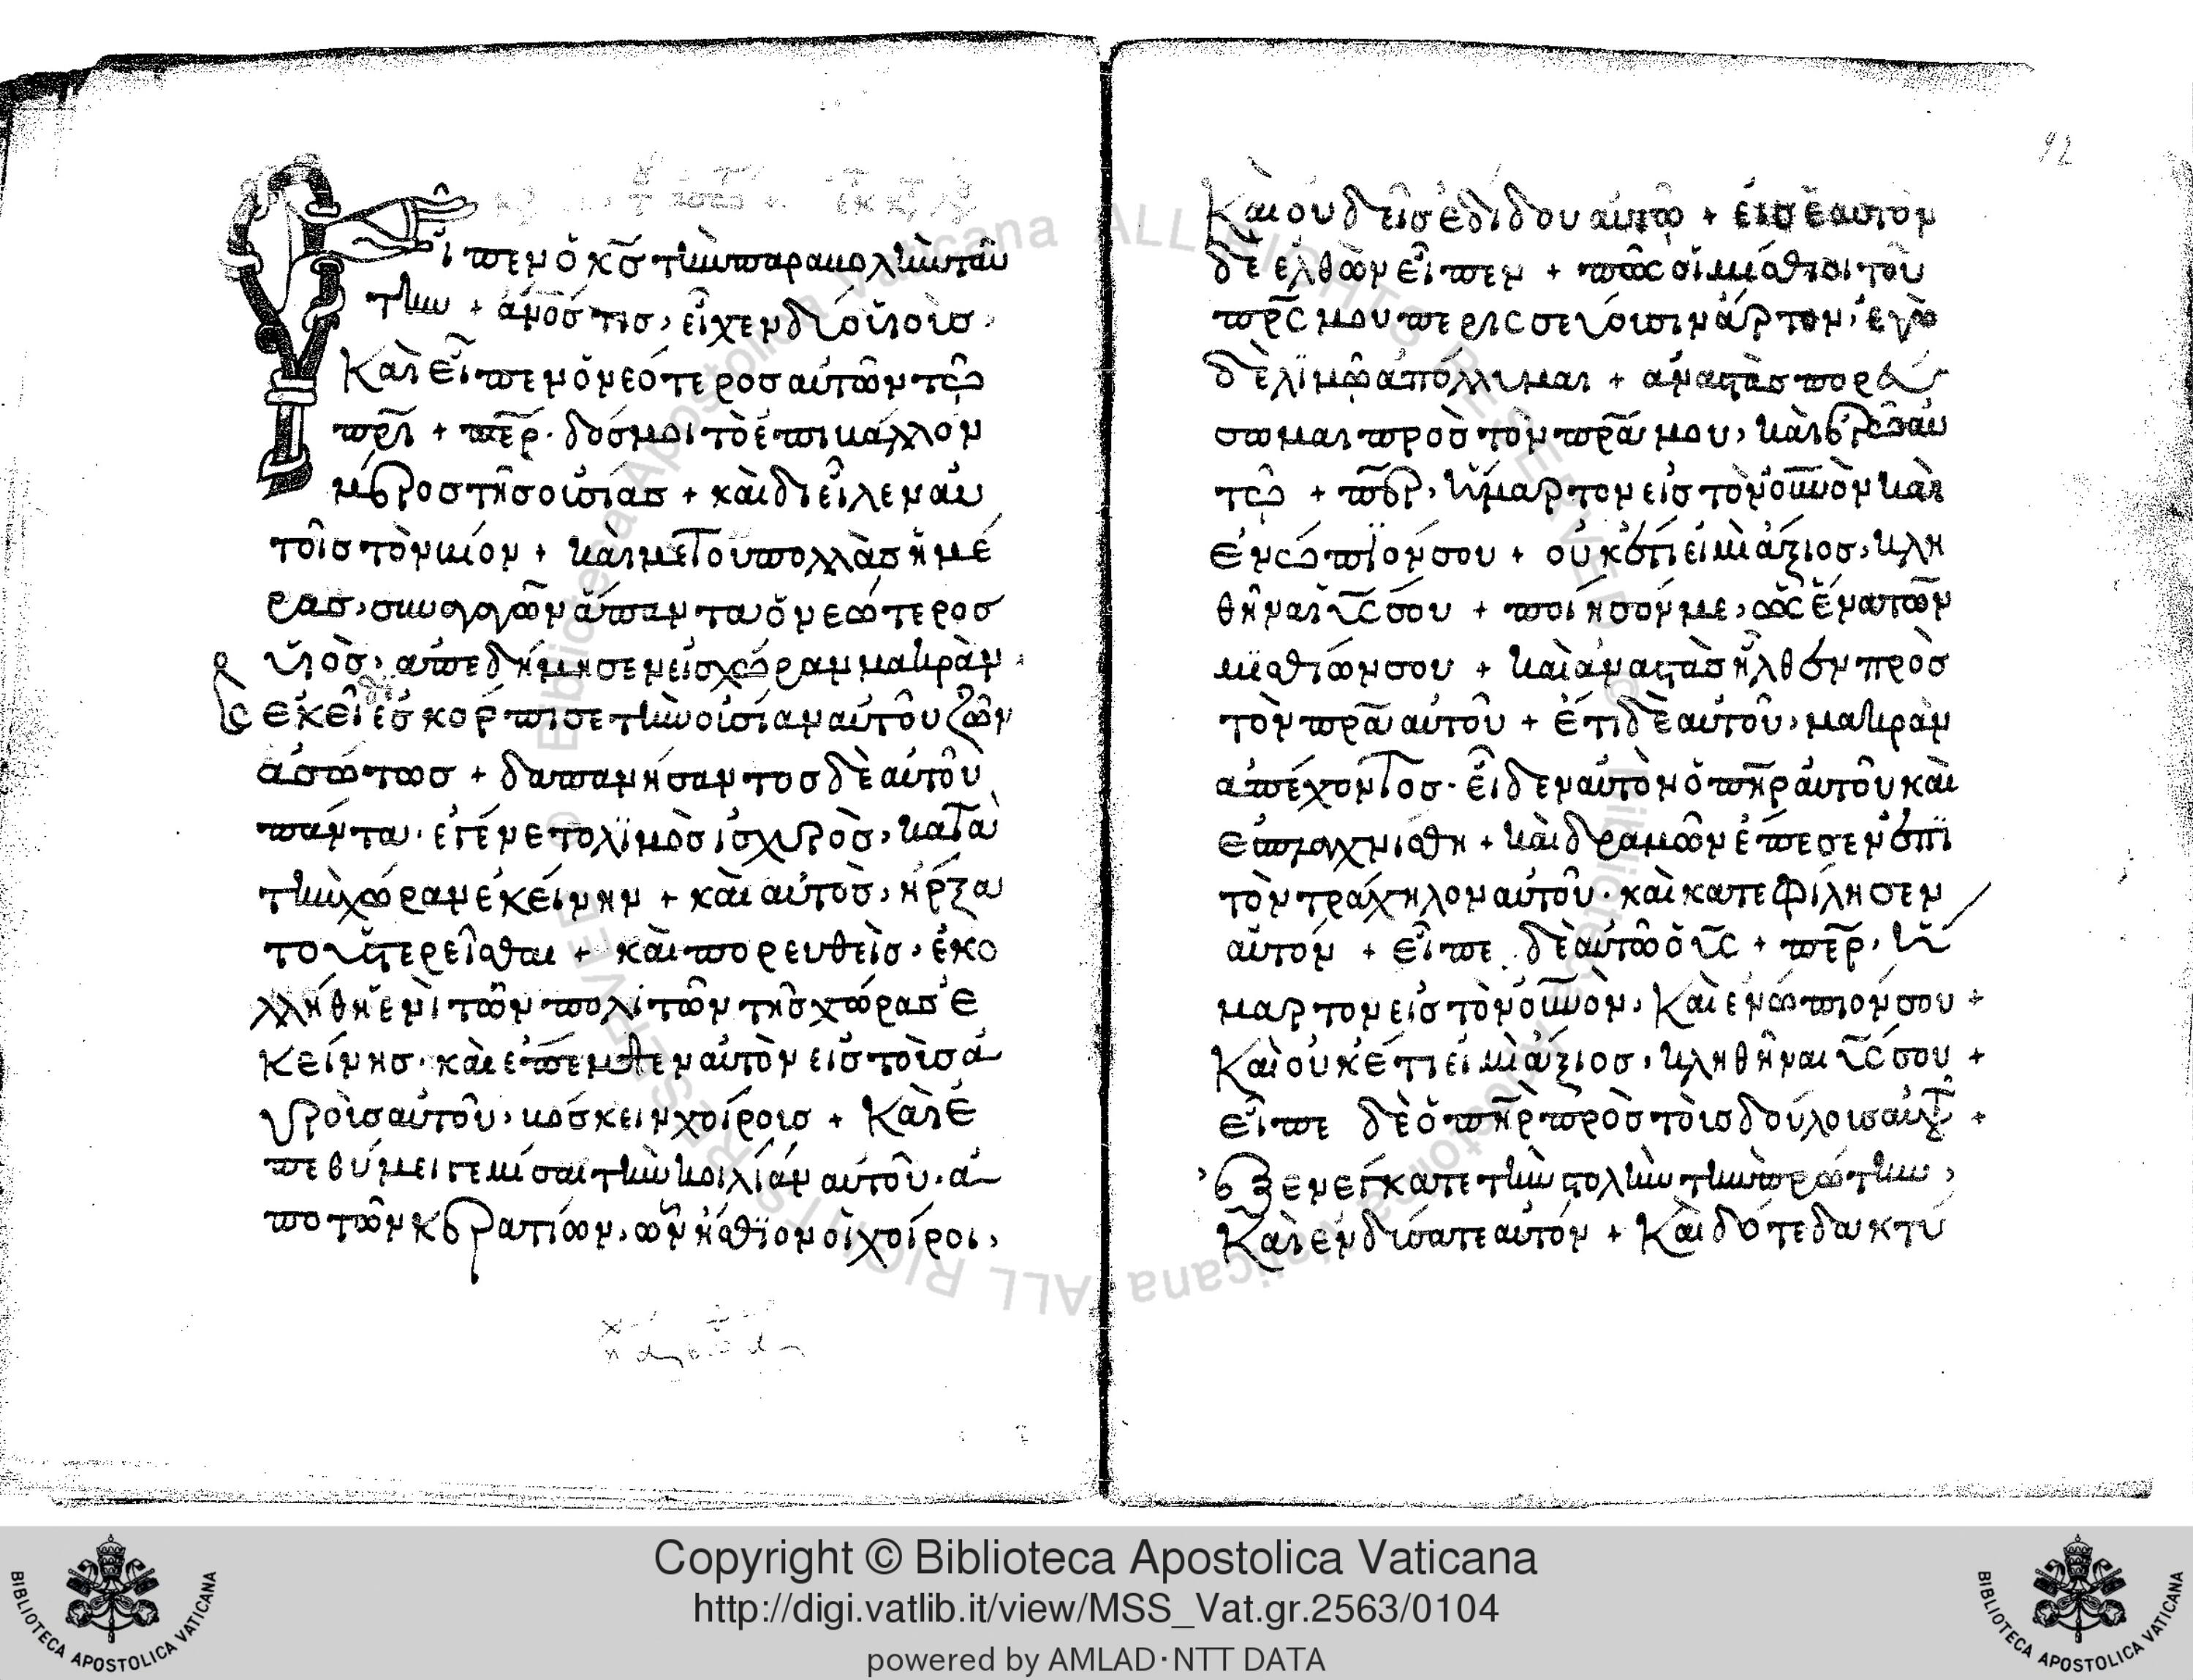 Εἶπεν ὁ κ̅ς̅ τὴν παραβολὴν ταύ
την + ἀνο̅ς̅ τις, εἶχεν δύο ὑιοὺς,
Καὶ εἶπεν ὁ νεότερος αὐτῶν τῶ
πρ̅ι̅ + πε̅ρ̅. δός μοι τὸ ἐπιβάλλον
μέρος τῆς οὐσίας + καὶ διεῖλεν αυ
τοῖς τὸν βίον + καὶ μετ οὐ πολλὰς ἡμέ
ρας, συναγαγῶν ἅπαντα ὁ νεώτερος
ὑιὸς, απεδήμησεν εἰς χώραν μακρὰν.
ἐκεῖ ἐσκόρπισε τὴν οὐσίαν αὐτοῦ ζῶν
ἀσώτως + δαπανήσαντος δὲ αὐτοῦ
πάντα. ἐγένετο λϊμὸς ἰσχυρὸς, κατὰ
τὴν χώραν ἐκείνην + καὶ αὐτὸς, ἤρξα
το ὑστερεῖσθαι + καὶ πορευθεὶς, ἐκο
λλήθη ἑνὶ τῶν πολιτῶν τῆς χώρας ἐ
κείνης. καὶ ἔπεμψεν αὐτὸν εἰς τοὺς ἀ
γροὺς αὐτοῦ, βόσκειν χοίρους + Καὶ ἐ
πεθύμει γεμίσαι τὴν κοιλίαν αὐτοῦ. ἀ
πο τῶν κερατίων, ὧν ἤσθϊον οἱ χοίροι,
92
Καὶ οὐδεὶς ἐδίδου αὐτῶ + εἰς ἑαυτὸν
δε ἐλθὼν εἶπεν + πόσοι μίσθιοι τοῦ
πρ̅ς̅ μου περισσεύουσιν ἄρτον, ἐγὼ
δὲ λϊμῶ ἀπόλλυμαι + αναστὰς πορεύ
σωμαι προς τὸν πρ̅α̅ μου, καὶ ἐρῶ αυ
τῶ + πε̅ρ̅, ἥμαρτον εἰς τὸν οὐ̅νὸν καὶ
ἐνώπϊόν σου + οὐκέτι εἰμὶ ἄξιος, κλη
θῆναι υ̅ς̅ σου + ποίησόν με, ὡς ἕνα τῶν
μϊσθίων σου + Καὶ αναστὰς ἦλθεν πρὸς
τὸν πρ̅α̅ αὐτοῦ + ἔτι δὲ αὐτοῦ, μακρὰν
ἀπέχοντος. εἶδεν αὐτὸν ὁ πη̅ρ̅ αὐτοῦ καὶ
ἐσπλαγχνίσθη + καὶ δραμὼν ἔπεσεν ἐπϊ
τὸν τράχηλον αὐτοῦ. καὶ κατεφίλησεν
αὐτόν + εἶπε δὲ αὐτῶ ὁ υ̅ς̅ + πε̅ρ̅, ἥ
μαρτον εἰς τὸν οὐ̅νὸν, Καὶ ενώπιόν σου +
Καὶ οὐκέτι εἰμὶ ἄξιος, κληθῆναι υ̅ς̅ σου +
εἶπε δὲ ὁ πη̅ρ̅ πρὸς τοὺς δούλους αὐτ̅ +
ἐξενέγκατε τὴν στολὴν τὴν πρώτην,
Καὶ ενδύσατε αὐτόν + Καὶ δότε δακτύ
Copyright © Biblioteca Apostolica Vaticana
http://digi.vatlib.it/view/MSS_Vat.gr.2563/0104
powered by AMLAD·NTT DATA
BIBLIOTECA APOSTOLICA VATICANA
BIBLIOTECA APOSTOLICA VATICANA